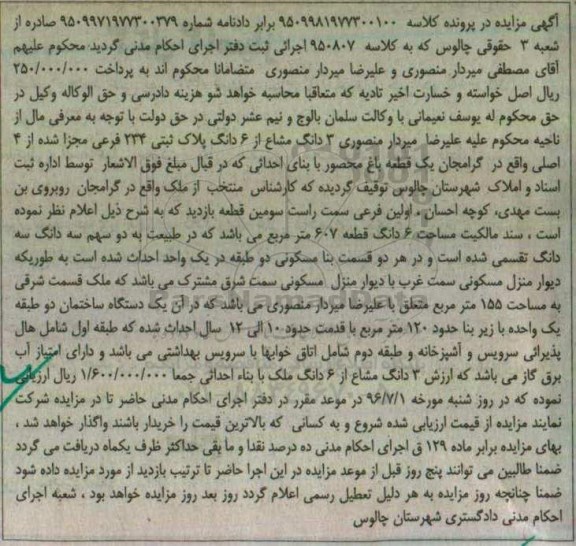 آگهی مزایده در پرونده کلاسه ۹۵۰۹۹۸۱۹۷۷۳۰۰۱۰۰ برابر دادنامه شماره ۹۵۰۹۹۷۱۹۷۷۳۰۰۳۷۹ صادره از
شعبه ۳ حقوقی چالوس که به کلاسه ۹۵۰۸۰۷ اجرائی ثبت دفتر اجرای احکام مدنی گردید محکوم علیهم
آقای مصطفی میردار منصوری و علیرضا میردار منصوری متضامنا محکوم اند به پرداخت ۲۵۰/۰۰۰/۰۰۰
ریال اصل خواسته و خسارت اخیر تادیه که متعاقبا محاسبه خواهد شو هزینه دادرسی و حق الوکاله وکیل در
حق محکوم له یوسف نعیمائی با وکالت سلمان بالوج و نیم عشر دولتی در حق دولت با توجه به معرفی مال از
ناحیه محکوم علیه علیرضا میردار منصوری ۳ دانگ مشاع از ۶ دانگ پلاک ثبتی ۲۳۴ فرعی مجزا شده از ۴
اصلی واقع در گرامجان یک قطعه باغ محصور با بنای احداثی که در قبال مبلغ فوق الاشعار توسط اداره ثبت
اسناد و املاک شهرستان چالوس توقیف گردیده که کارشناس منتخب از ملک واقع در گرامجان روبروی بن
بست مهدی، کوچه احسان ، اولین فرعی سمت راست سومین قطعه بازدید که به شرح ذیل اعلام نظر نموده
است ، سند مالکیت مساحت ۶ دانگ قطعه ۶۰۷ متر مربع می باشد که در طبیعت به دو سهم سه دانگ سه
دانگ تقسمی شده است و در هر دو قسمت بنا مسکونی دو طبقه در یک واحد احداث شده است به طوریکه
دیوار منزل مسکونی سمت غرب با دیوار منزل مسکونی سمت شرق مشترک می باشد که ملک قسمت شرقی
به مساحت ۱۵۵ متر مربع متعلق با علیرضا میردار منصوری می باشد که در آن یک دستگاه ساختمان دو طبقه
یک واحده با زیر بنا حدود ۱۲۰ متر مربع با قدمت حدود ۱۰ الی ۱۲ سال احداث شده که طبقه اول شامل هال
پذیرائی سرویس و آشپزخانه و طبقه دوم شامل اتاق خوابها با سرویس بهداشتی می باشد و دارای امتیاز آب
برق گاز می باشد که ارزش ۳ دانگ مشاع از ۶ دانگ ملک با بناء احداثی جمعا ۱/۶۰۰/۰۰۰/۰۰۰ ریال ارزیابی
نموده که در روز شنبه مورخه ۹۶/۷/۱ در موعد مقرر در دفتر اجرای احکام مدنی حاضر تا در مزایده شرکت
نمایند مزایده از قیمت ارزیابی شده شروع و به کسانی که بالاترین قیمت را خریدار باشند واگذار خواهد شد ،
بهای مزایده برابر ماده ۱۲۹ ق اجرای احکام مدنی ده درصد نقدا و ما بقی حداکثر ظرف یکماه دریافت می گردد
ضمنا طالبین می توانند پنج روز قبل از موعد مزایده در این اجرا حاضر تا ترتیب بازدید از مورد مزایده داده شود
ضمنا چنانچه روز مزایده به هر دلیل تعطیل رسمی اعلام گردد روز بعد روز مزایده خواهد بود ، شعبه اجرای
احکام مدنی دادگستری شهرستان چالوس